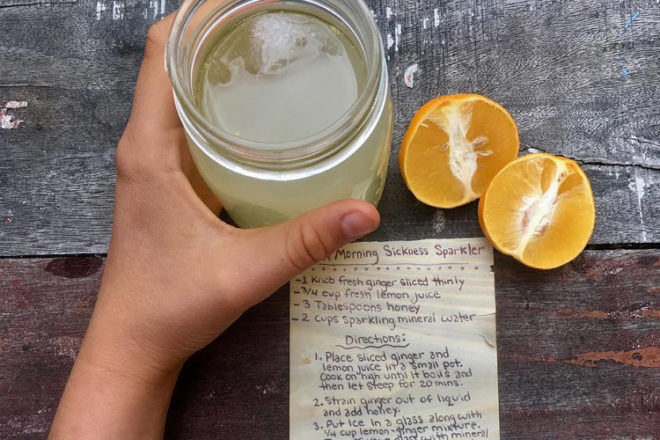 Morning Sickness Sparkler
- 1 Knob fresh ginger sliced thinly
- 3/4 cup fresh lemon juice
- 3 Tablespoons honey
- 2 cups sparkling mineral water
Directions:
1. Place sliced ginger and
lemon juice in a small pot.
Cook on high until it boils and
then let steep for 20 mins.
2. Strain ginger out of liquid
and add honey.
3. Put ice in a glass along with
1/4 cup lemon-ginger mixture.
glass with mineral